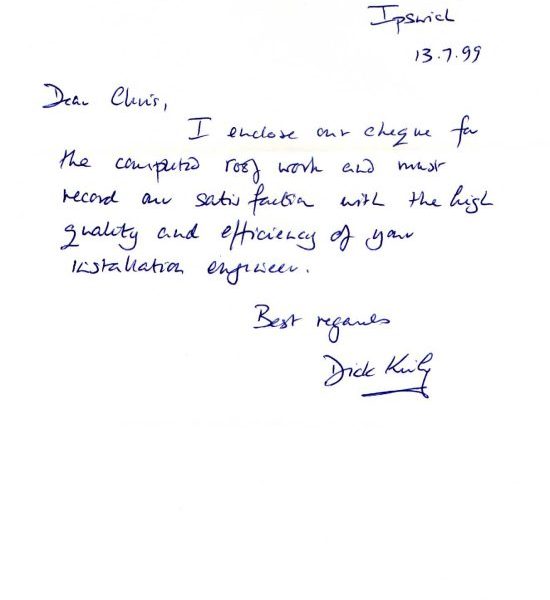 Ipswich
13.7.99
Dear Chris,
I enclose our cheque for
the completed roof work and must
record our satisfaction with the high
quality and efficiency of your
installation engineer.
Best regards
Dick